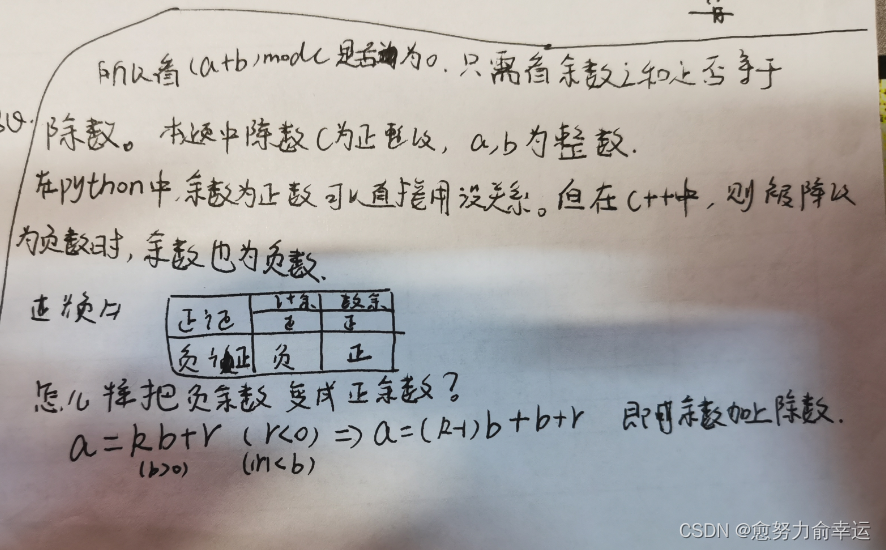 所以看(a+b)mod c是否为0.只需看余数之和是否等于
除数。本题中除数C为正整数,a,b为整数.
在python中,余数为正数可以直接用没关系。但在C++中,则被除数
为负数时,余数也为负数.
计余 数余
正%正 正 正
负%正 负 正
怎么样把负余数变成正余数?
a=kb+r (r<0) => a=(k-1)b+b+r 即用余数加上除数.
(b>0) (|r|<b)
CSDN @愈努力俞幸运